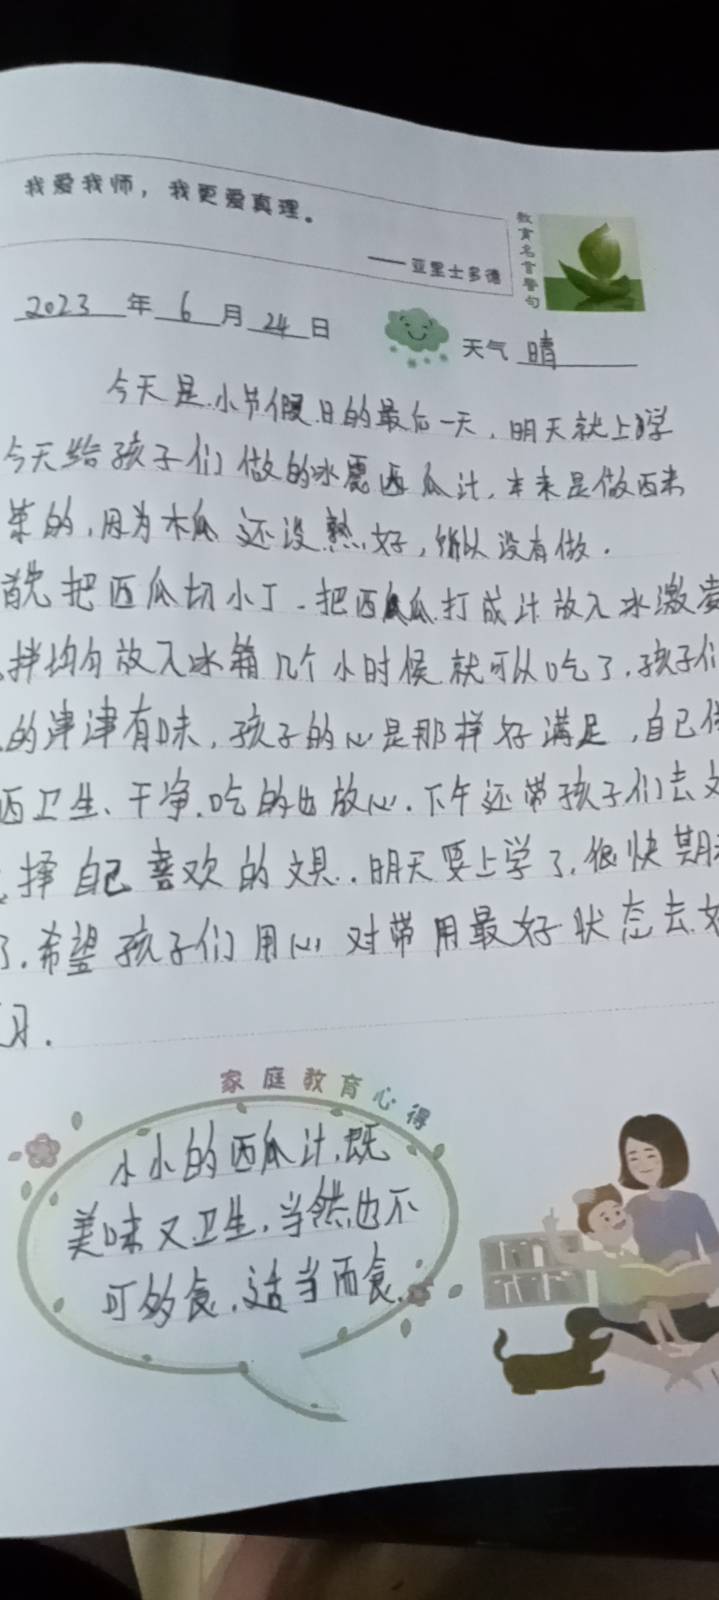 我爱我师，我更爱真理。
——亚里士多德
教育名言警句
2023年6月24日
天气 晴
今天是小节假日的最后一天，明天就上学
今天给孩子们做的冰震西瓜汁，本来是做西米
的，因为木瓜还没熟好，所以没有做．
首先把西瓜切小丁．把西瓜打成汁放入冰激凌
拌均匀放入冰箱几个小时候就可以吃了．孩子们
的津津有味，孩子的心是那样好满足，自己做
西卫生、干净．吃的也放心．下午还带孩子们去文
择自己喜欢的文具．明天要上学了．很快期末
了．希望孩子们用心对带用最好状态去
习．
家庭教育心得
小小的西瓜汁，既
美味又卫生，当然也不
可多食，适当而食．